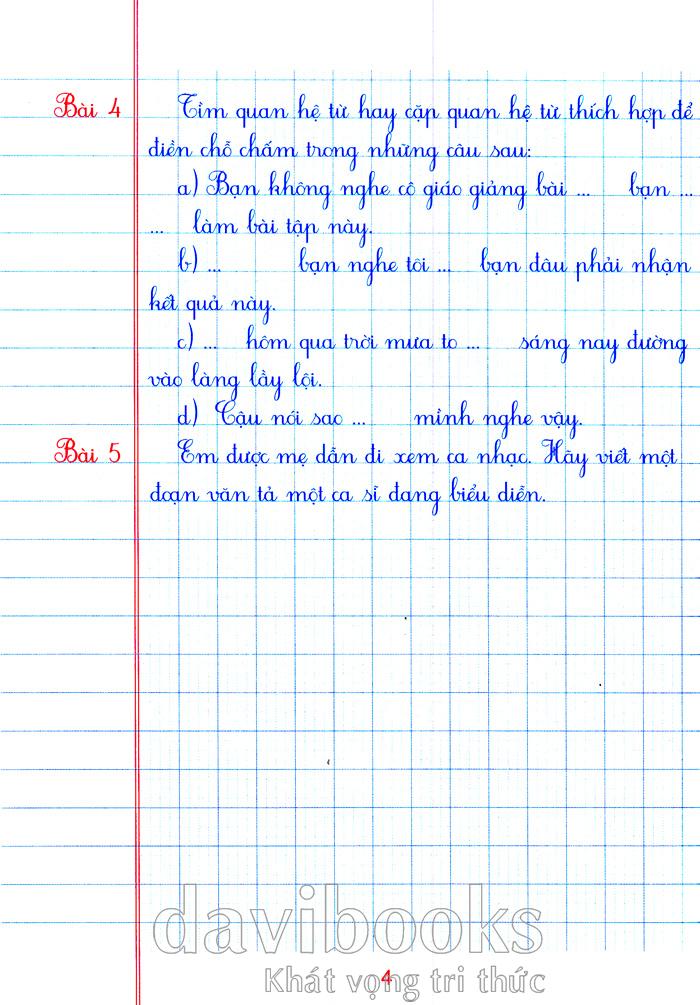 Bài 4 Tìm quan hệ từ hay cặp quan hệ từ thích hợp để
điền chỗ chấm trong những câu sau:
a) Bạn không nghe cô giáo giảng bài ... bạn ...
... làm bài tập này.
b) ... bạn nghe tôi ... bạn đâu phải nhận
kết quả này.
c) ... hôm qua trời mưa to ... sáng nay đường
vào làng lầy lội.
d) Cậu nói sao ... mình nghe vậy.
Bài 5 Em được mẹ dẫn đi xem ca nhạc. Hãy viết một
đoạn văn tả một ca sĩ đang biểu diễn.
davibooks
Khát vọng tri thức
4